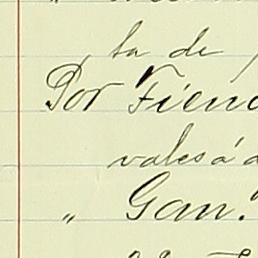 ta de
Por Fien
vales á
" Gan.